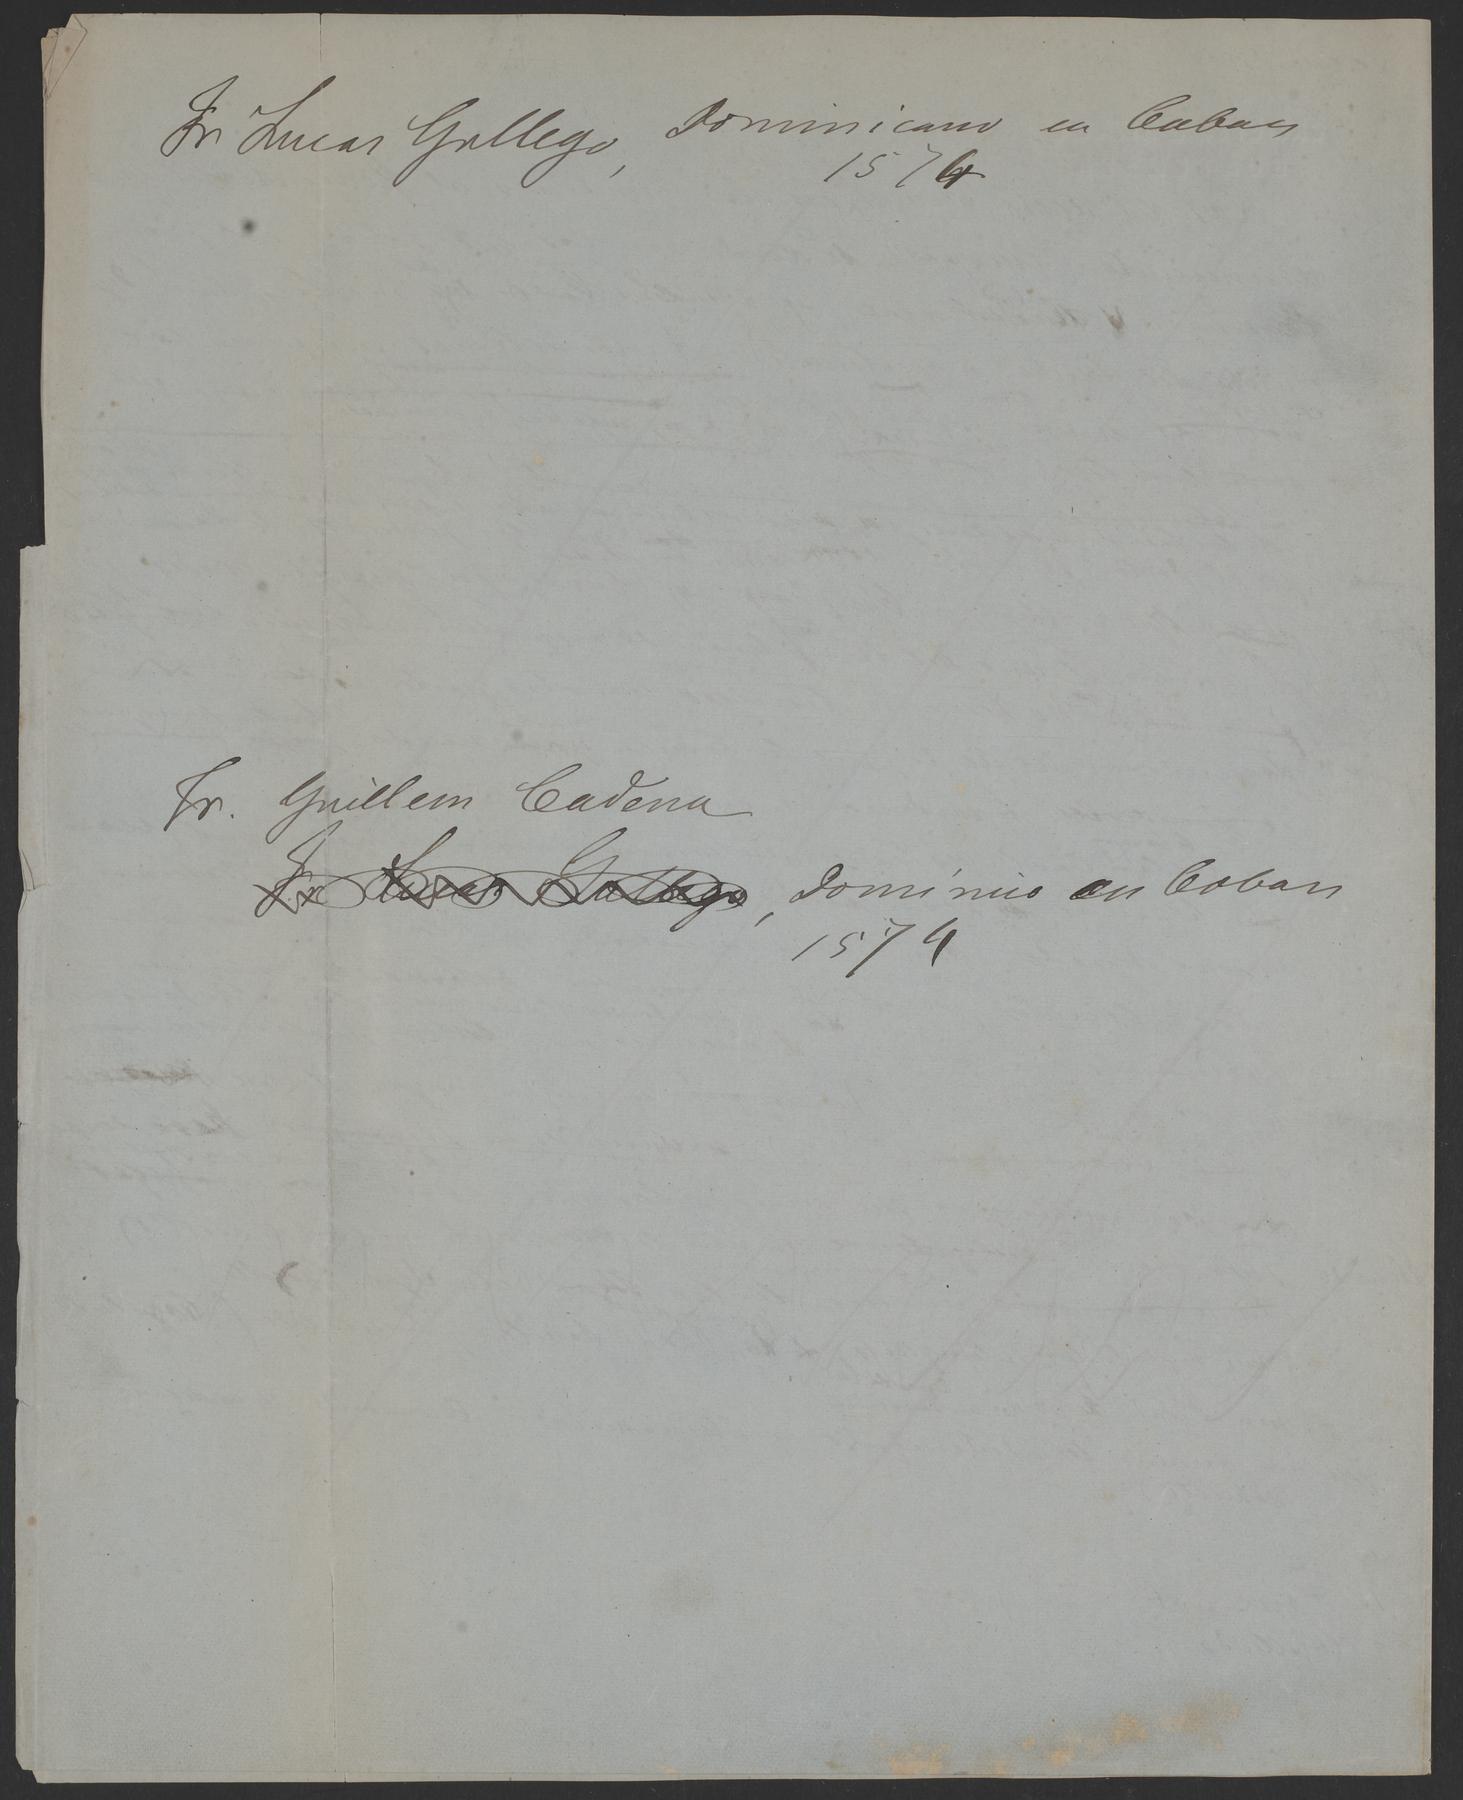 Fr Lucas Gallego, Dominicano en Coban
1574
Fr. Guillem Cadena
Fr Lucas Gallego, Dominico en Coban
1574